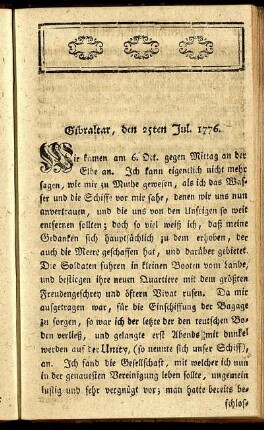 Gibraltar, den 25ten Jul. 1776.
Wir kamen am 6. Oct. gegen Mittag an der
Elbe an. Ich kann eigentlich nicht mehr
sagen, wie mir zu Muthe gewesen, als ich das Waſ-
ſer und die Schiffe vor mir ſahe, denen wir uns nun
anvertrauen, und die uns von den Unſrigen ſo weit
entfernen ſollten; doch ſo viel weiß ich, daß meine
Gedanken ſich hauptſächlich zu dem erhoben, der
auch die Meere geſchaffen hat, und darüber gebietet.
Die Soldaten fuhren in kleinen Booten vom Lande,
und beſtiegen ihre neuen Quartiere mit dem größten
Freudengeſchrey und öftern Vivat rufen. Da mir
aufgetragen war, für die Einſchiffung der Bagage
zu ſorgen, ſo war ich der letzte der den teutſchen Bo-
den verließ, und gelangte erſt Abends mit dunkel
werden auf der Unity, (ſo nennte ſich unſer Schiff)
an. Ich fand die Geſellſchaft, mit welcher ich nun
in der genaueſten Vereinigung leben ſollte, ungemein
luſtig und ſehr vergnügt vor; man hatte bereits be-
ſchloſ-